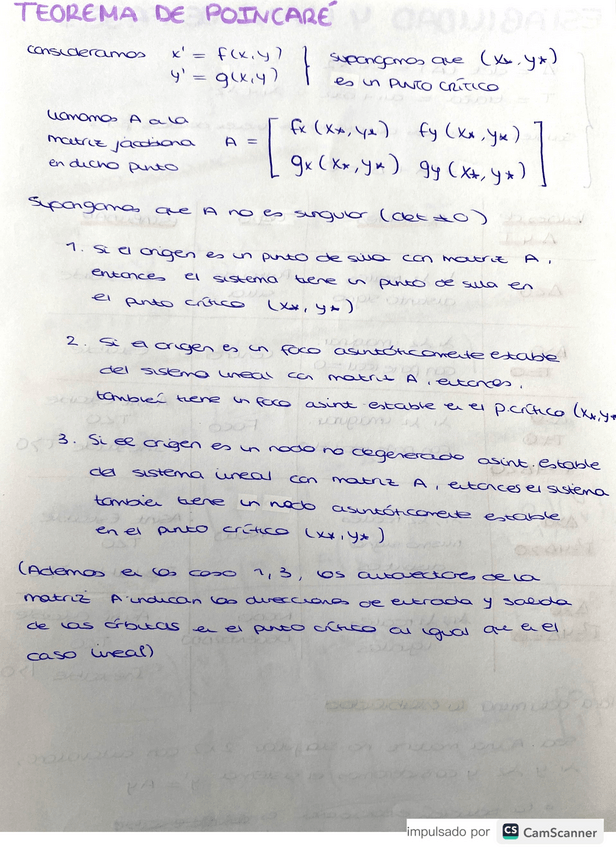 TEOREMA DE POINCARÉ
consideramos x' = f(x,y) } supongamos que (x*, y*)
y' = g(x,y) es un PUNTO CRÍTICO
llamamos A a la
matriz jacobiana A = [ fx (x*, y*) fy (x*, y*)
en dicho punto gx (x*, y*) gy (x*, y*) ]
Supongamos que A no es singular (det ≠ 0)
1. Si el origen es un punto de silla con matriz A,
entonces el sistema tiene un punto de silla en
el punto crítico (x*, y*)
2. Si el origen es un foco asintóticamente estable
del sistema lineal con matriz A, entonces,
también tiene un foco asint. estable en el p.crítico (x*, y*
3. Si el origen es un nodo no degenerado asint. estable
del sistema lineal con matriz A, entonces el sistema
también tiene un nodo asintóticamente estable
en el punto crítico (x*, y*)
(Además en los caso 1, 3, los autovectores de la
matriz A indican las direcciones de entrada y salida
de las órbitas en el punto crítico al igual que en el
caso lineal)
impulsado por CS CamScanner